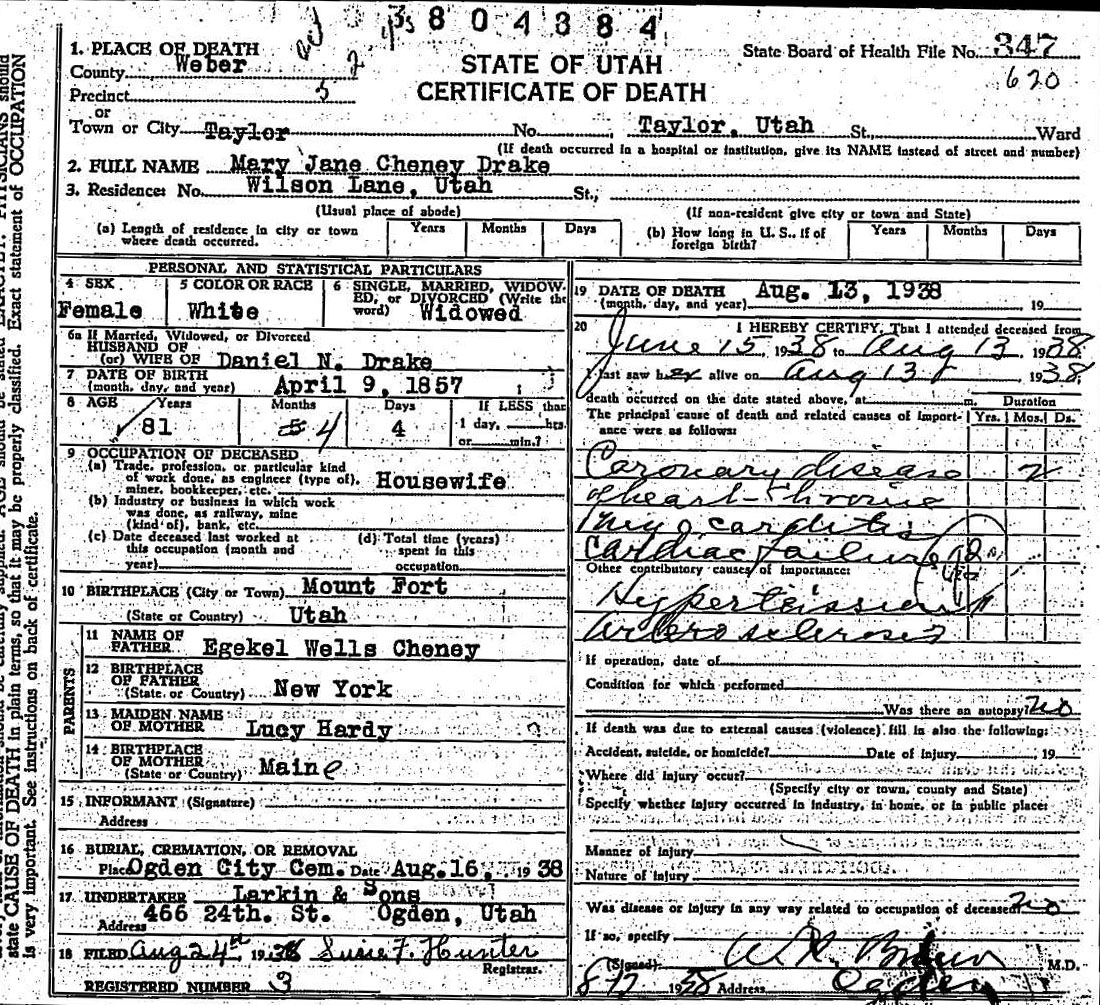 3804384
State Board of Health File No. 347
620
STATE OF UTAH
CERTIFICATE OF DEATH
1. PLACE OF DEATH
County Weber
Precinct 5
or
Town or City Taylor No. Taylor, Utah St., Ward
(If death occurred in a hospital or institution, give its NAME instead of street and number)
2. FULL NAME Mary Jane Cheney Drake
3. Residence: No. Wilson Lane, Utah St.,
(Usual place of abode) (If non-resident give city or town and State)
(a) Length of residence in city or town where death occurred. Years Months Days
(b) How long in U. S., if of foreign birth? Years Months Days
PERSONAL AND STATISTICAL PARTICULARS
4 SEX Female
5 COLOR OR RACE White
6 SINGLE, MARRIED, WIDOWED, or DIVORCED (Write the word) Widowed
6a If Married, Widowed, or Divorced
HUSBAND OF
(or) WIFE OF Daniel N. Drake
7 DATE OF BIRTH
(month, day, and year) April 9, 1857
8 AGE Years Months Days If LESS than
81 5 4 4 1 day, hrs.
or min.?
9 OCCUPATION OF DECEASED
(a) Trade, profession, or particular kind
of work done, as engineer (type of), Housewife
miner, bookkeeper, etc.
(b) Industry or business in which work
was done, as railway, mine
(kind of), bank, etc.
(c) Date deceased last worked at
this occupation (month and
year)
(d) Total time (years)
spent in this
occupation
10 BIRTHPLACE (City or Town) Mount Fort
(State or Country) Utah
PARENTS
11 NAME OF
FATHER Egekel Wells Cheney
12 BIRTHPLACE
OF FATHER
(State or Country) New York
13 MAIDEN NAME
OF MOTHER Lucy Hardy
14 BIRTHPLACE
OF MOTHER
(State or Country) Maine
15 INFORMANT (Signature)
Address
16 BURIAL, CREMATION, OR REMOVAL
Place Ogden City Cem. Date Aug. 16, 1938
17 UNDERTAKER Larkin & Sons
Address 466 24th. St. Ogden, Utah
18 FILED Aug 24th, 1938 Susie F. Hunter
Registrar.
REGISTERED NUMBER 3
19 DATE OF DEATH Aug. 13, 1938
(month, day, and year) 19
20 I HEREBY CERTIFY, That I attended deceased from
June 15, 1938 to Aug 13, 1938
I last saw her alive on Aug 13, 1938
death occurred on the date stated above, at m. Duration
The principal cause of death and related causes of importance were as follows: Yrs. Mos. Ds.
Coronary disease 2
of heart - Chronic
Myocarditis
Cardiac failure
Other contributory causes of importance:
Hypertension
Arterosclerosis
If operation, date of
Condition for which performed
Was there an autopsy? no
If death was due to external causes (violence) fill in also the following:
Accident, suicide, or homicide? Date of injury 19
Where did injury occur?
(Specify city or town, county and State)
Specify whether injury occurred in industry, in home, or in public place:
Manner of injury
Nature of injury
Was disease or injury in any way related to occupation of deceased? no
If so, specify
(Signed) W. R. Brown M.D.
8/17 1938 Address Ogden
state CAUSE OF DEATH in plain terms, so that it may be properly classified. Exact statement of OCCUPATION
is very important. See instructions on back of certificate.